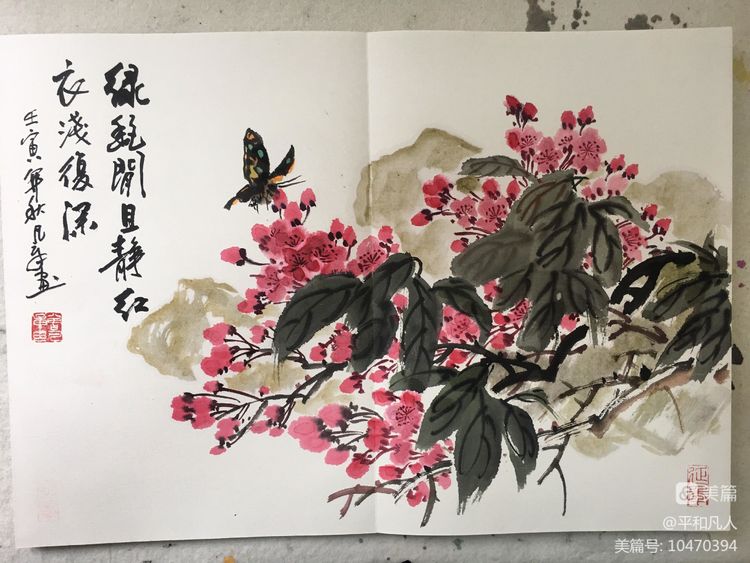 绿艳閒且静红
衣浅復深
壬寅年秋凡画
美篇
@平和凡人
美篇号: 10470394